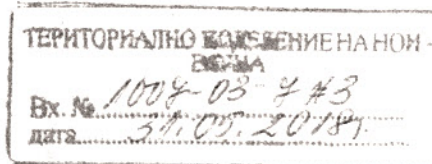 ТЕРИТОРИАЛНО ПОДЕЛЕНИЕ НА НОИ -
Вх. № 1007-03-7#3
дата 31.05.2018г.